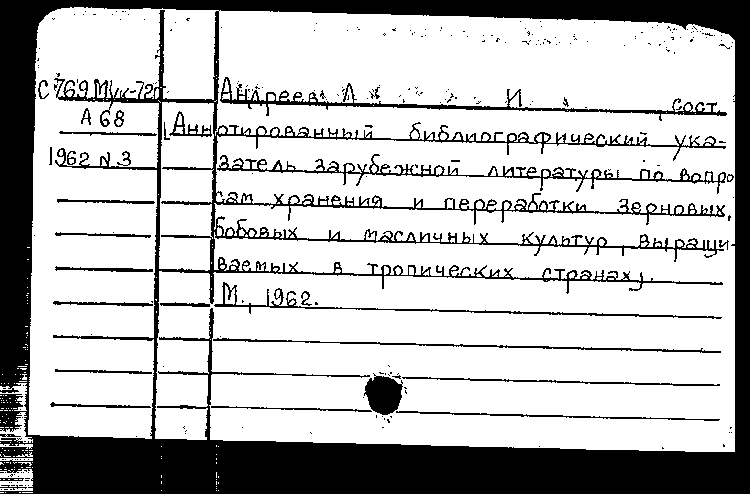 С 769 Мук-72г Андреев, А И , сост.
А 68 Аннотированный библиографический ука-
1962 N.3 затель зарубежной литературы по вопро
сам хранения и переработки зерновых,
бобовых и масличных культур, выращи-
ваемых в тропических странах,.
М., 1962.